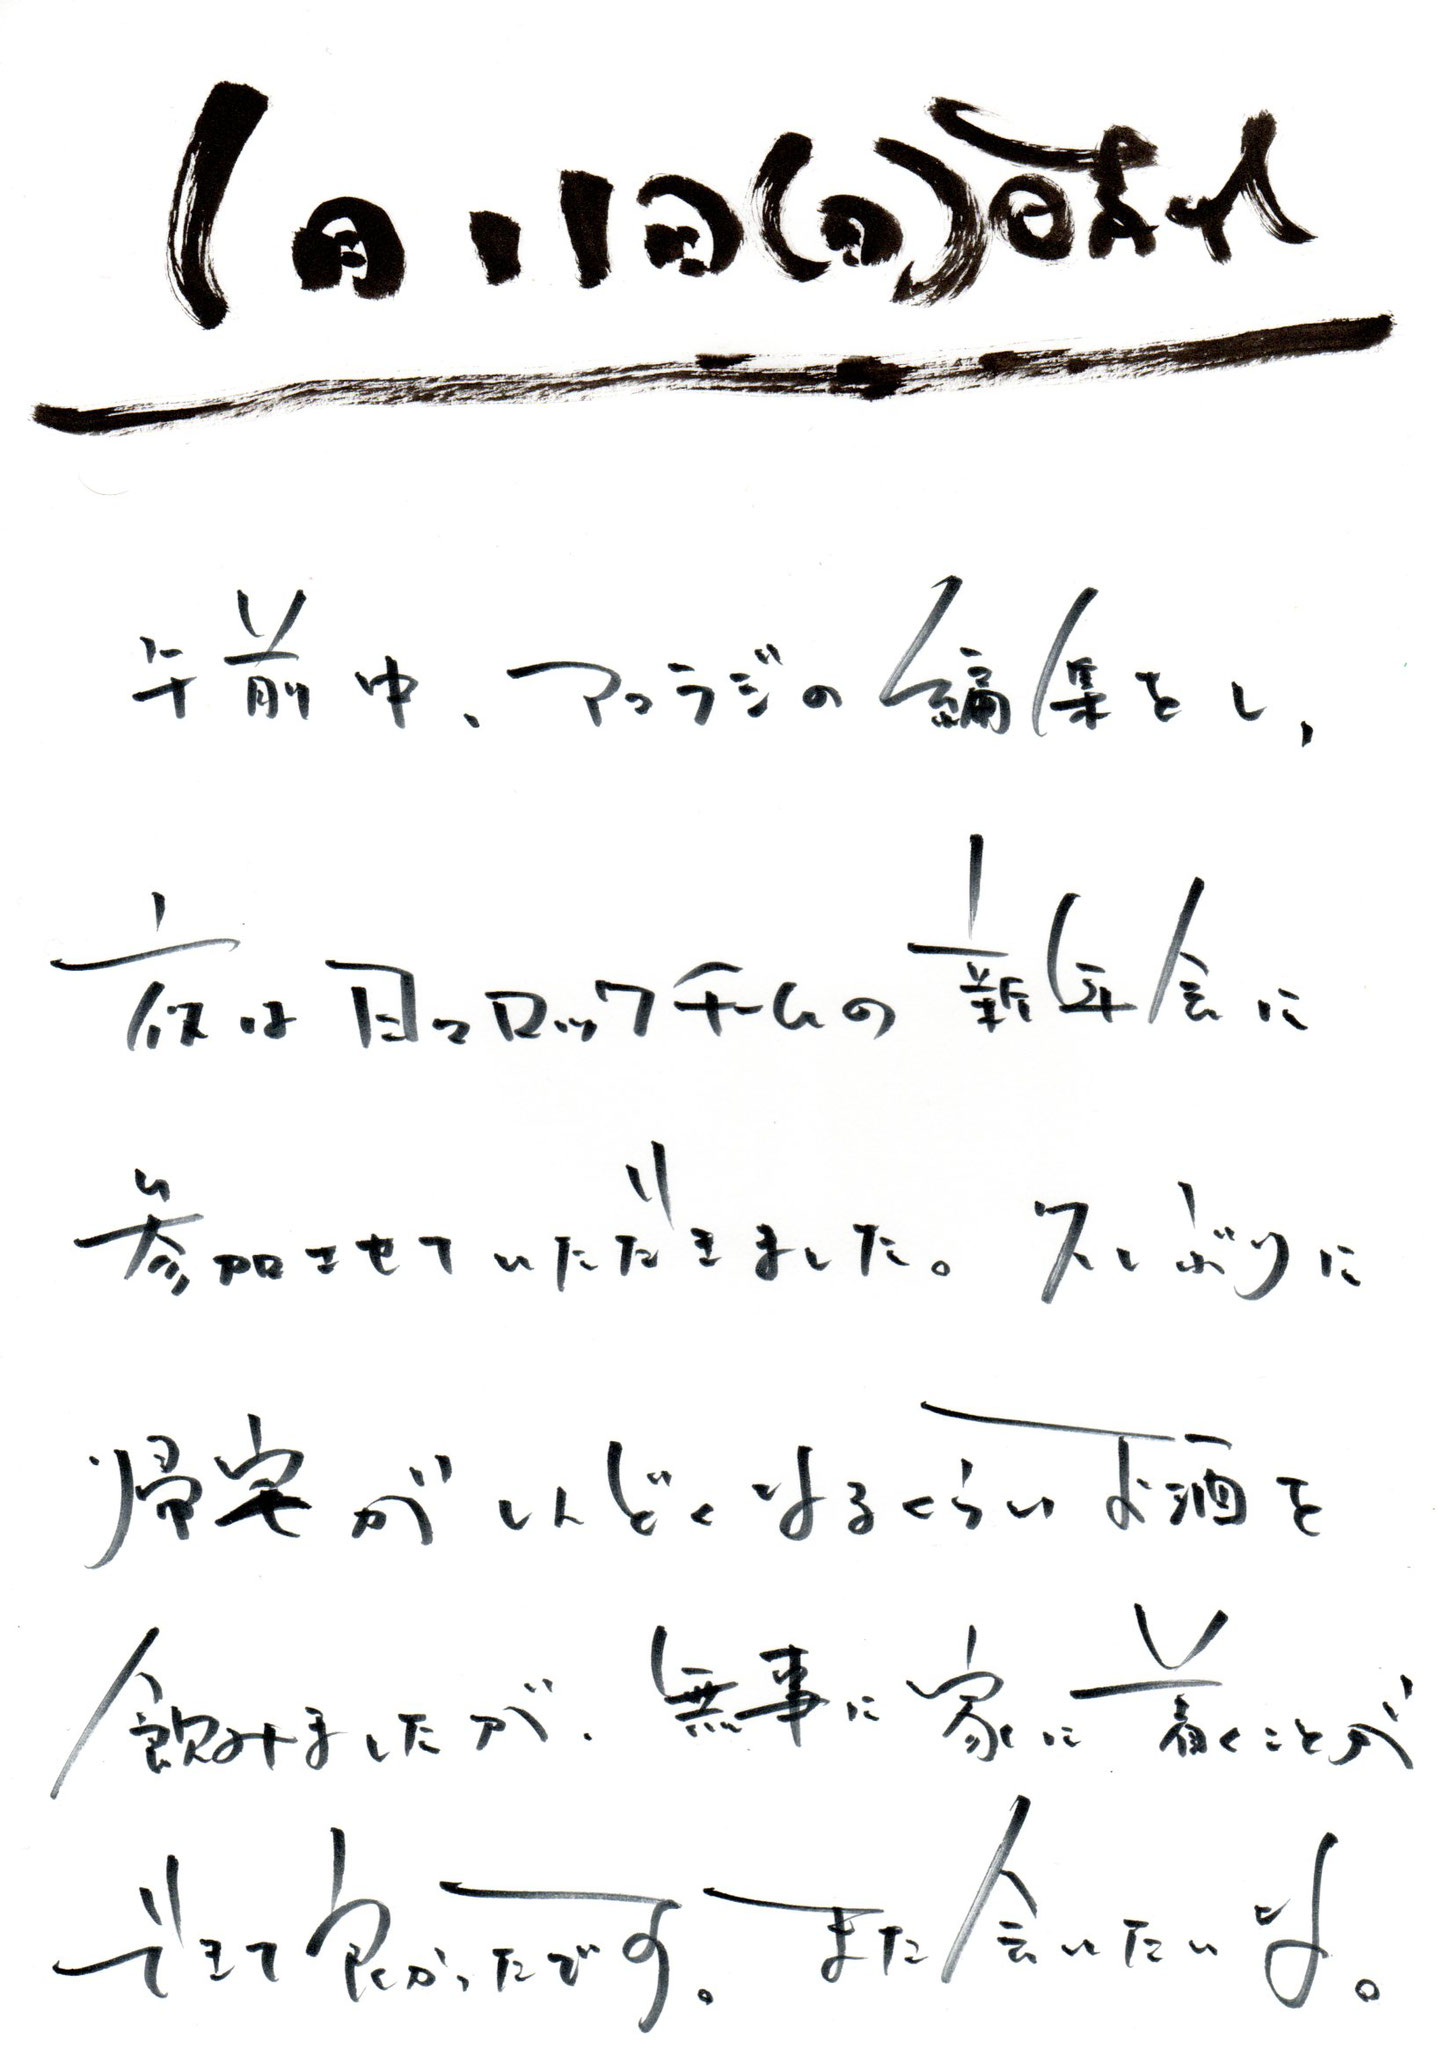 1月11日(日)晴れ
午前中、アコラジの編集をし、
夜は日々ロックチームの新年会に
参加させていただきました。久しぶりに
帰宅がしんどくなるくらいお酒を
飲みましたが、無事に家に着くことが
できて良かったです。また会いたいな。